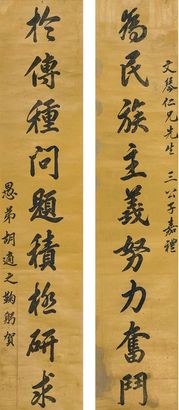 為民族主義努力奮鬥
文琴仁兄先生 三公子嘉禮
於傳種問題積極研求
愚弟胡適之鞠躬賀